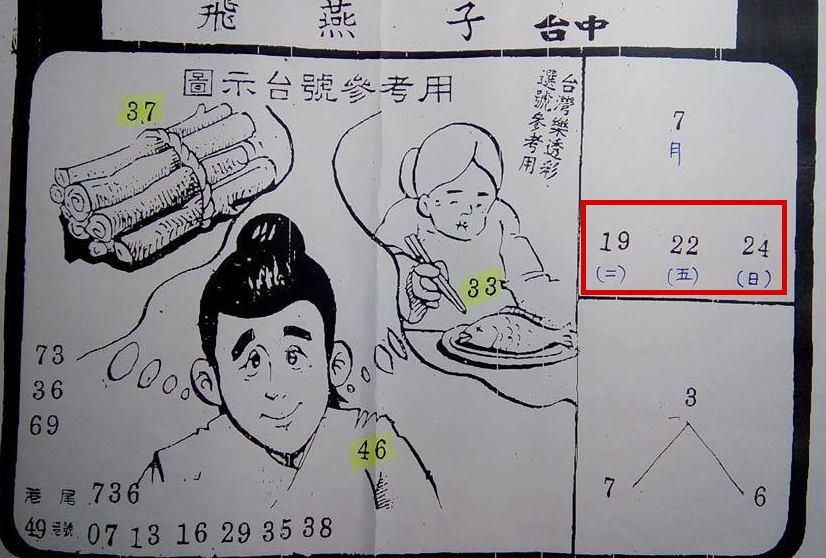 飛燕子 台中
圖示台號參考用
台灣樂透彩
選號參考用
37
33
46
73
36
69
港尾 736
49 號 07 13 16 29 35 38
7
月
19 22 24
(二) (五) (日)
3
7 6